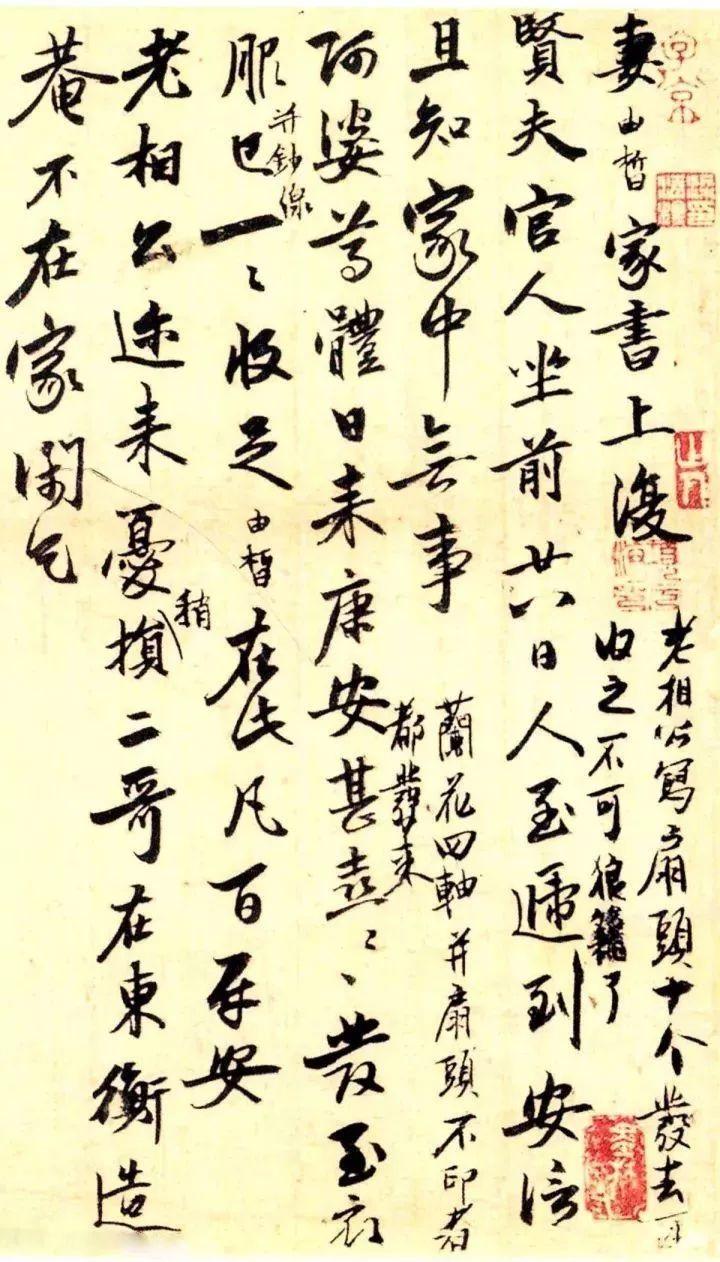 妻由晳家書上復
老相公寫扇頭十个發去可
收之不可狼籍了
賢夫官人坐前廿八日人至遞到安信
且知家中無事
蘭花四軸并扇頭不印者
都發来
阿婆尊體日来康安甚喜〻發至衣
服已并鈔線一〻收足由晳在此凡百平安
老相公迩来稍憂損二哥在東衡造
菴不在家閑乞